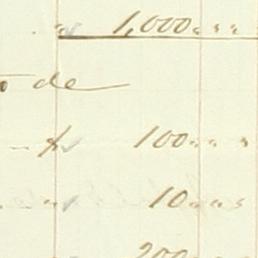 " 1,000 " "
de
" 100 " "
" 10 " "
200